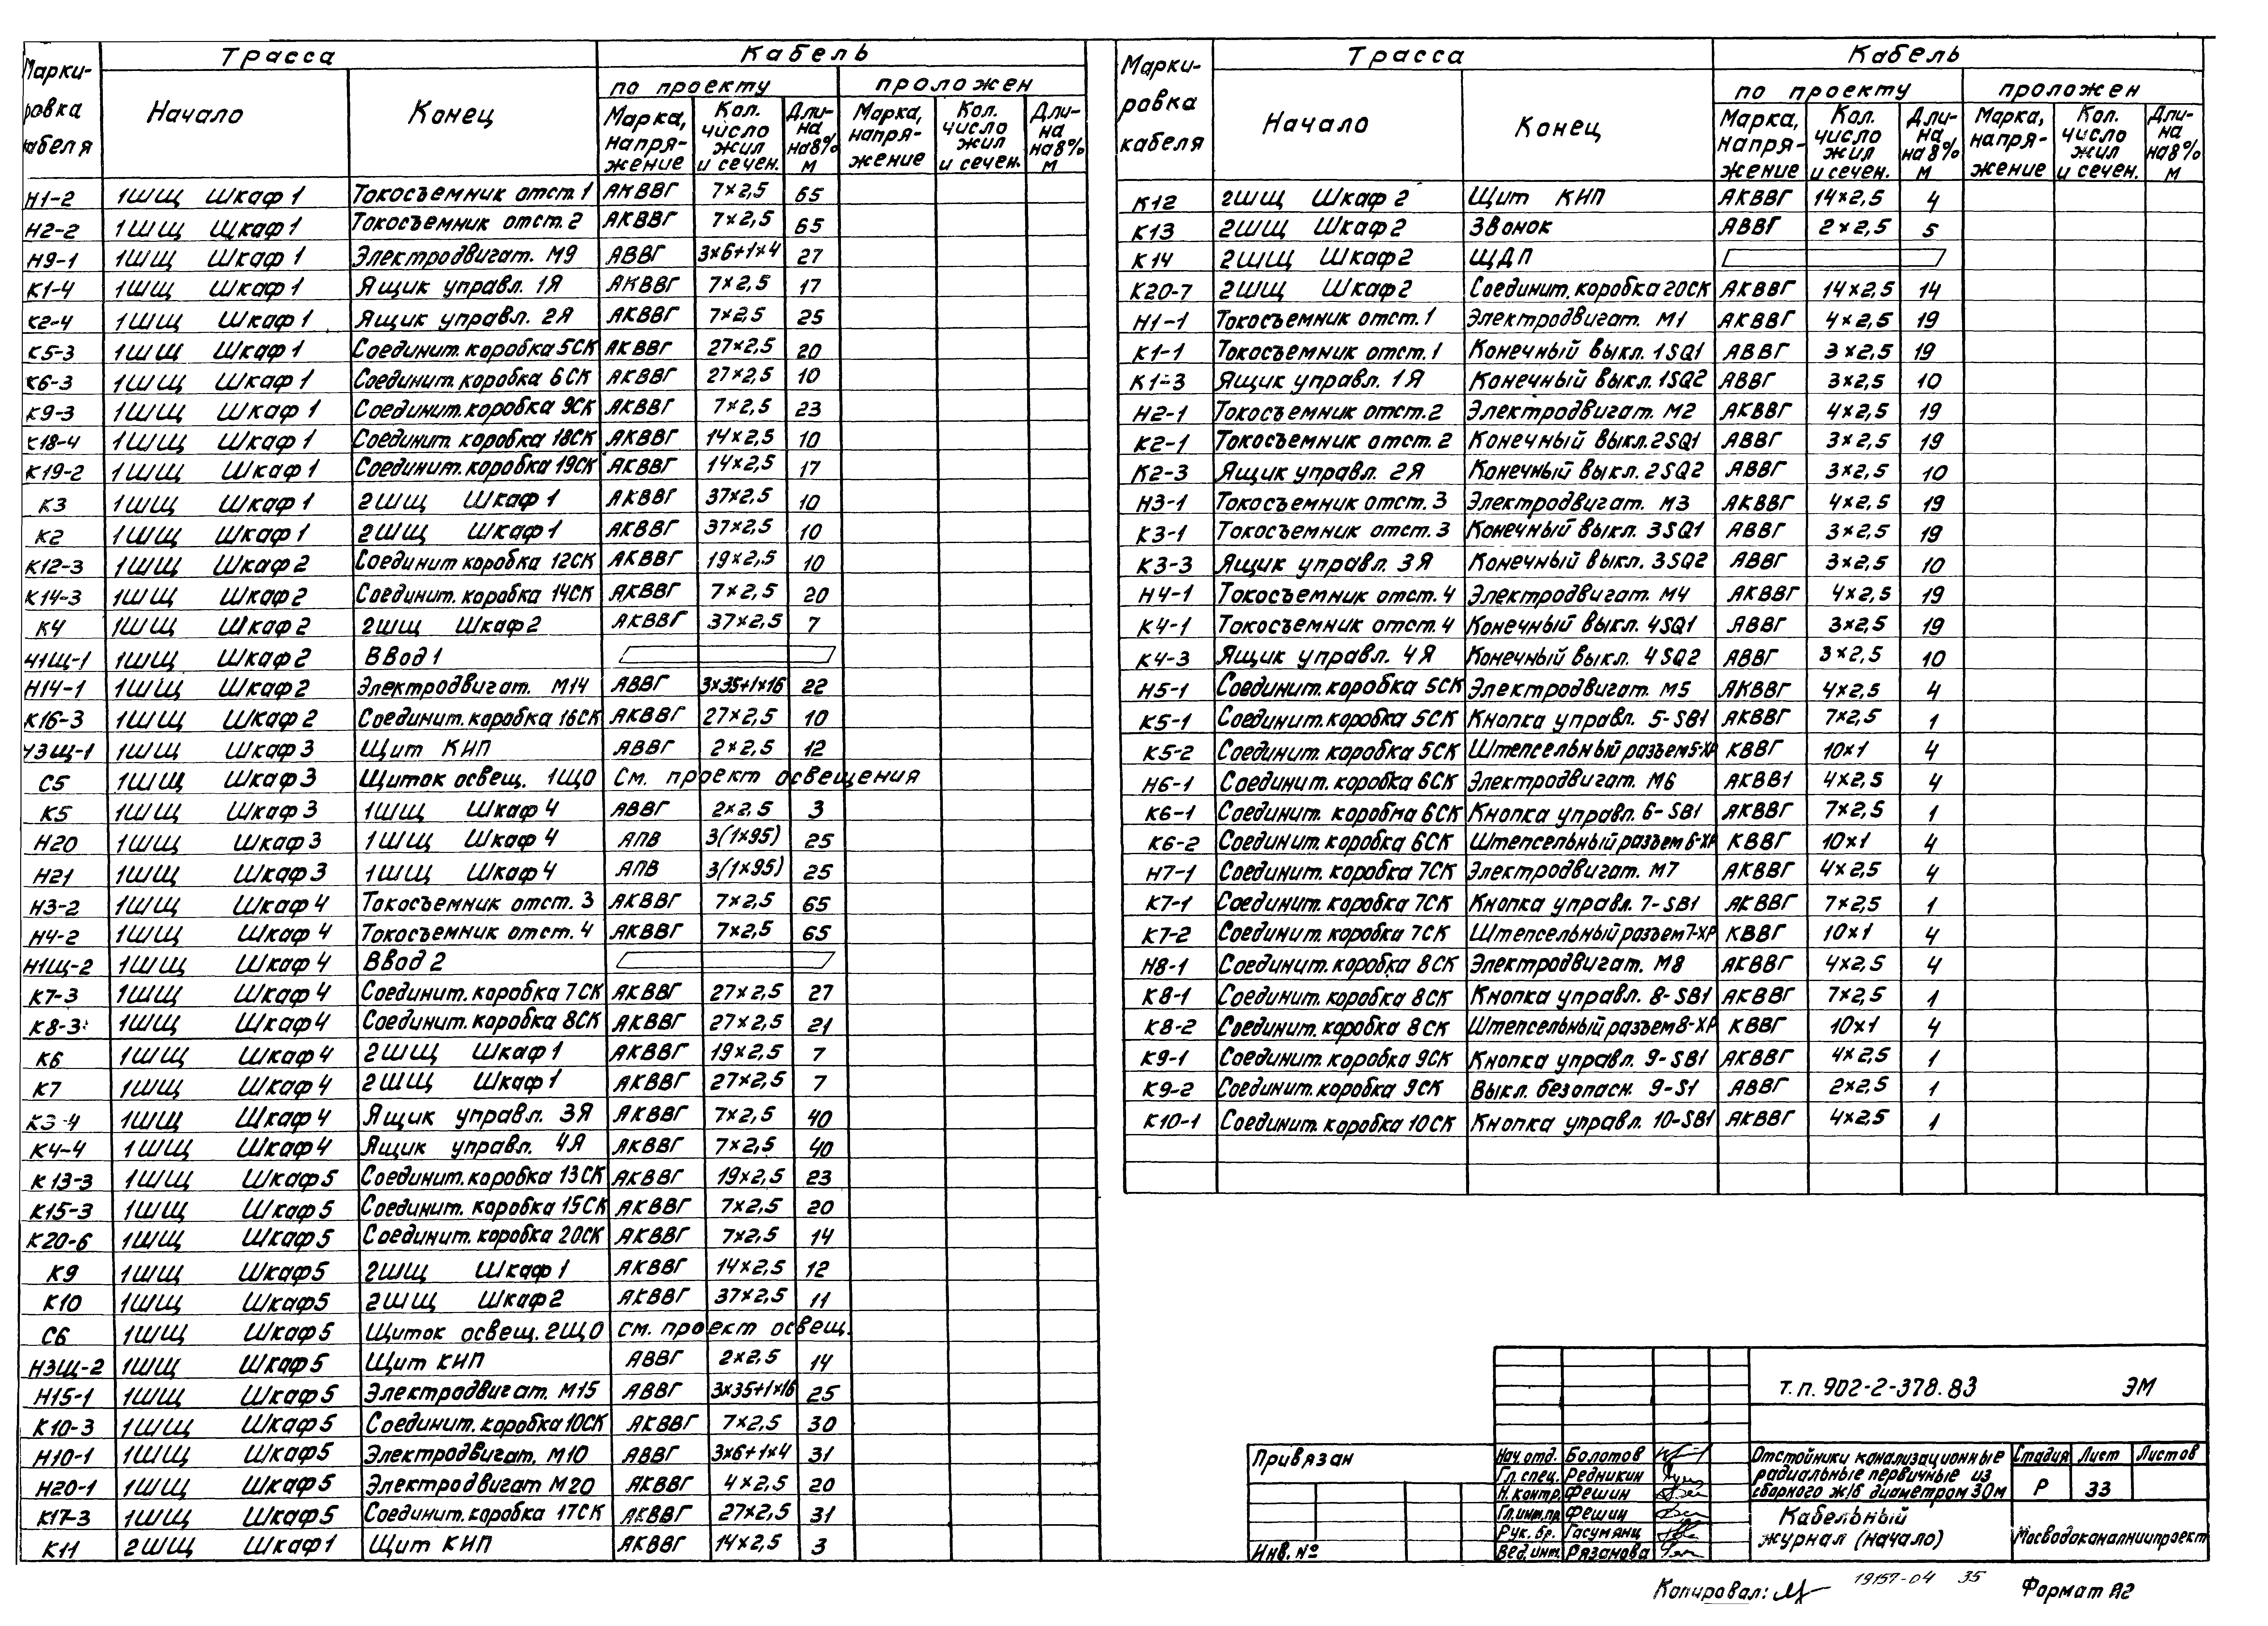 Маркировка кабеля Трасса Кабель
Начало Конец по проекту проложен
Марка, напряжение Кол. число жил и сечен. Длина на 8% м Марка, напряжение Кол. число жил и сечен. Длина на 8% м
Н1-2 1ШЩ Шкаф 1 Токосъемник отст. 1 АКВВГ 7×2,5 65
Н2-2 1ШЩ Шкаф 1 Токосъемник отст. 2 АКВВГ 7×2,5 65
Н9-1 1ШЩ Шкаф 1 Электродвигат. М9 АВВГ 3×6+1×4 27
К1-4 1ШЩ Шкаф 1 Ящик управл. 1Я АКВВГ 7×2,5 17
К2-4 1ШЩ Шкаф 1 Ящик управл. 2Я АКВВГ 7×2,5 25
К5-3 1ШЩ Шкаф 1 Соединит. коробка 5СК АКВВГ 27×2,5 20
К6-3 1ШЩ Шкаф 1 Соединит. коробка 6СК АКВВГ 27×2,5 10
К9-3 1ШЩ Шкаф 1 Соединит. коробка 9СК АКВВГ 7×2,5 23
К18-4 1ШЩ Шкаф 1 Соединит. коробка 18СК АКВВГ 14×2,5 10
К19-2 1ШЩ Шкаф 1 Соединит. коробка 19СК АКВВГ 14×2,5 17
К3 1ШЩ Шкаф 1 2ШЩ Шкаф 1 АКВВГ 37×2,5 10
К2 1ШЩ Шкаф 1 2ШЩ Шкаф 1 АКВВГ 37×2,5 10
К12-3 1ШЩ Шкаф 2 Соединит коробка 12СК АКВВГ 19×2,5 10
К14-3 1ШЩ Шкаф 2 Соединит. коробка 14СК АКВВГ 7×2,5 20
К4 1ШЩ Шкаф 2 2ШЩ Шкаф 2 АКВВГ 37×2,5 7
Н1Щ-1 1ШЩ Шкаф 2 Ввод 1
Н14-1 1ШЩ Шкаф 2 Электродвигат. М14 АВВГ 3×35+1×16 22
К16-3 1ШЩ Шкаф 2 Соединит. коробка 16СК АКВВГ 27×2,5 10
Н3Щ-1 1ШЩ Шкаф 3 Щит КИП АВВГ 2×2,5 12
С5 1ШЩ Шкаф 3 Щиток освещ. 1ЩО См. проект освещения
К5 1ШЩ Шкаф 3 1ШЩ Шкаф 4 АВВГ 2×2,5 3
Н20 1ШЩ Шкаф 3 1ШЩ Шкаф 4 АПВ 3(1×95) 25
Н21 1ШЩ Шкаф 3 1ШЩ Шкаф 4 АПВ 3(1×95) 25
Н3-2 1ШЩ Шкаф 4 Токосъемник отст. 3 АКВВГ 7×2,5 65
Н4-2 1ШЩ Шкаф 4 Токосъемник отст. 4 АКВВГ 7×2,5 65
Н1Щ-2 1ШЩ Шкаф 4 Ввод 2
К7-3 1ШЩ Шкаф 4 Соединит. коробка 7СК АКВВГ 27×2,5 27
К8-3 1ШЩ Шкаф 4 Соединит. коробка 8СК АКВВГ 27×2,5 21
К6 1ШЩ Шкаф 4 2ШЩ Шкаф 1 АКВВГ 19×2,5 7
К7 1ШЩ Шкаф 4 2ШЩ Шкаф 1 АКВВГ 27×2,5 7
К3-4 1ШЩ Шкаф 4 Ящик управл. 3Я АКВВГ 7×2,5 40
К4-4 1ШЩ Шкаф 4 Ящик управл. 4Я АКВВГ 7×2,5 40
К13-3 1ШЩ Шкаф 5 Соединит. коробка 13СК АКВВГ 19×2,5 23
К15-3 1ШЩ Шкаф 5 Соединит. коробка 15СК АКВВГ 7×2,5 20
К20-6 1ШЩ Шкаф 5 Соединит. коробка 20СК АКВВГ 7×2,5 14
К9 1ШЩ Шкаф 5 2ШЩ Шкаф 1 АКВВГ 14×2,5 12
К10 1ШЩ Шкаф 5 2ШЩ Шкаф 2 АКВВГ 37×2,5 11
С6 1ШЩ Шкаф 5 Щиток освещ. 2ЩО см. проект освещ.
Н3Щ-2 1ШЩ Шкаф 5 Щит КИП АВВГ 2×2,5 14
Н15-1 1ШЩ Шкаф 5 Электродвигат. М15 АВВГ 3×35+1×16 25
К10-3 1ШЩ Шкаф 5 Соединит. коробка 10СК АКВВГ 7×2,5 30
Н10-1 1ШЩ Шкаф 5 Электродвигат. М10 АВВГ 3×6+1×4 31
Н20-1 1ШЩ Шкаф 5 Электродвигат М20 АКВВГ 4×2,5 20
К17-3 1ШЩ Шкаф 5 Соединит. коробка 17СК АКВВГ 27×2,5 31
К11 2ШЩ Шкаф 1 Щит КИП АКВВГ 14×2,5 3
Маркировка кабеля Трасса Кабель
Начало Конец по проекту проложен
Марка, напряжение Кол. число жил и сечен. Длина на 8% м Марка, напряжение Кол. число жил и сечен. Длина на 8% м
К12 2ШЩ Шкаф 2 Щит КИП АКВВГ 14×2,5 4
К13 2ШЩ Шкаф 2 Звонок АВВГ 2×2,5 5
К14 2ШЩ Шкаф 2 ЩДП
К20-7 2ШЩ Шкаф 2 Соединит. коробка 20СК АКВВГ 14×2,5 14
Н1-1 Токосъемник отст. 1 Электродвигат. М1 АКВВГ 4×2,5 19
К1-1 Токосъемник отст. 1 Конечный выкл. 1SQ1 АВВГ 3×2,5 19
К1-3 Ящик управл. 1Я Конечный выкл. 1SQ2 АВВГ 3×2,5 10
Н2-1 Токосъемник отст. 2 Электродвигат. М2 АКВВГ 4×2,5 19
К2-1 Токосъемник отст. 2 Конечный выкл. 2SQ1 АВВГ 3×2,5 19
К2-3 Ящик управл. 2Я Конечный выкл. 2SQ2 АВВГ 3×2,5 10
Н3-1 Токосъемник отст. 3 Электродвигат. М3 АКВВГ 4×2,5 19
К3-1 Токосъемник отст. 3 Конечный выкл. 3SQ1 АВВГ 3×2,5 19
К3-3 Ящик управл. 3Я Конечный выкл. 3SQ2 АВВГ 3×2,5 10
Н4-1 Токосъемник отст. 4 Электродвигат. М4 АКВВГ 4×2,5 19
К4-1 Токосъемник отст. 4 Конечный выкл. 4SQ1 АВВГ 3×2,5 19
К4-3 Ящик управл. 4Я Конечный выкл. 4SQ2 АВВГ 3×2,5 10
Н5-1 Соединит. коробка 5СК Электродвигат. М5 АКВВГ 4×2,5 4
К5-1 Соединит. коробка 5СК Кнопка управл. 5-SB1 АКВВГ 7×2,5 1
К5-2 Соединит. коробка 5СК Штепсельный разъем 5-ХР КВВГ 10×1 4
Н6-1 Соединит. коробка 6СК Электродвигат. М6 АКВВ1 4×2,5 4
К6-1 Соединит. коробка 6СК Кнопка управл. 6-SB1 АКВВГ 7×2,5 1
К6-2 Соединит. коробка 6СК Штепсельный разъем 6-ХР КВВГ 10×1 4
Н7-1 Соединит. коробка 7СК Электродвигат. М7 АКВВГ 4×2,5 4
К7-1 Соединит. коробка 7СК Кнопка управл. 7-SB1 АКВВГ 7×2,5 1
К7-2 Соединит. коробка 7СК Штепсельный разъем 7-ХР КВВГ 10×1 4
Н8-1 Соединит. коробка 8СК Электродвигат. М8 АКВВГ 4×2,5 4
К8-1 Соединит. коробка 8СК Кнопка управл. 8-SB1 АКВВГ 7×2,5 1
К8-2 Соединит. коробка 8СК Штепсельный разъем 8-ХР КВВГ 10×1 4
К9-1 Соединит. коробка 9СК Кнопка управл. 9-SB1 АКВВГ 4×2,5 1
К9-2 Соединит. коробка 9СК Выкл. безопасн. 9-S1 АВВГ 2×2,5 1
К10-1 Соединит. коробка 10СК Кнопка управл. 10-SB1 АКВВГ 4×2,5 1
т.п. 902-2-378.83 ЭМ
Привязан
Инв. №
Нач. отд. Болотов
Гл. спец. Редникин
Н. контр. Фешин
Гл. инж. пр. Фешин
Рук. бр. Гасумянц
Вед. инж. Рязанова
Отстойники канализационные
радиальные первичные из
сборного ж/б диаметром 30м
Стадия Лист Листов
Р 33
Кабельный
журнал (начало)
Мосводоканалниипроект
Копировал: 19157-04 35 Формат А2